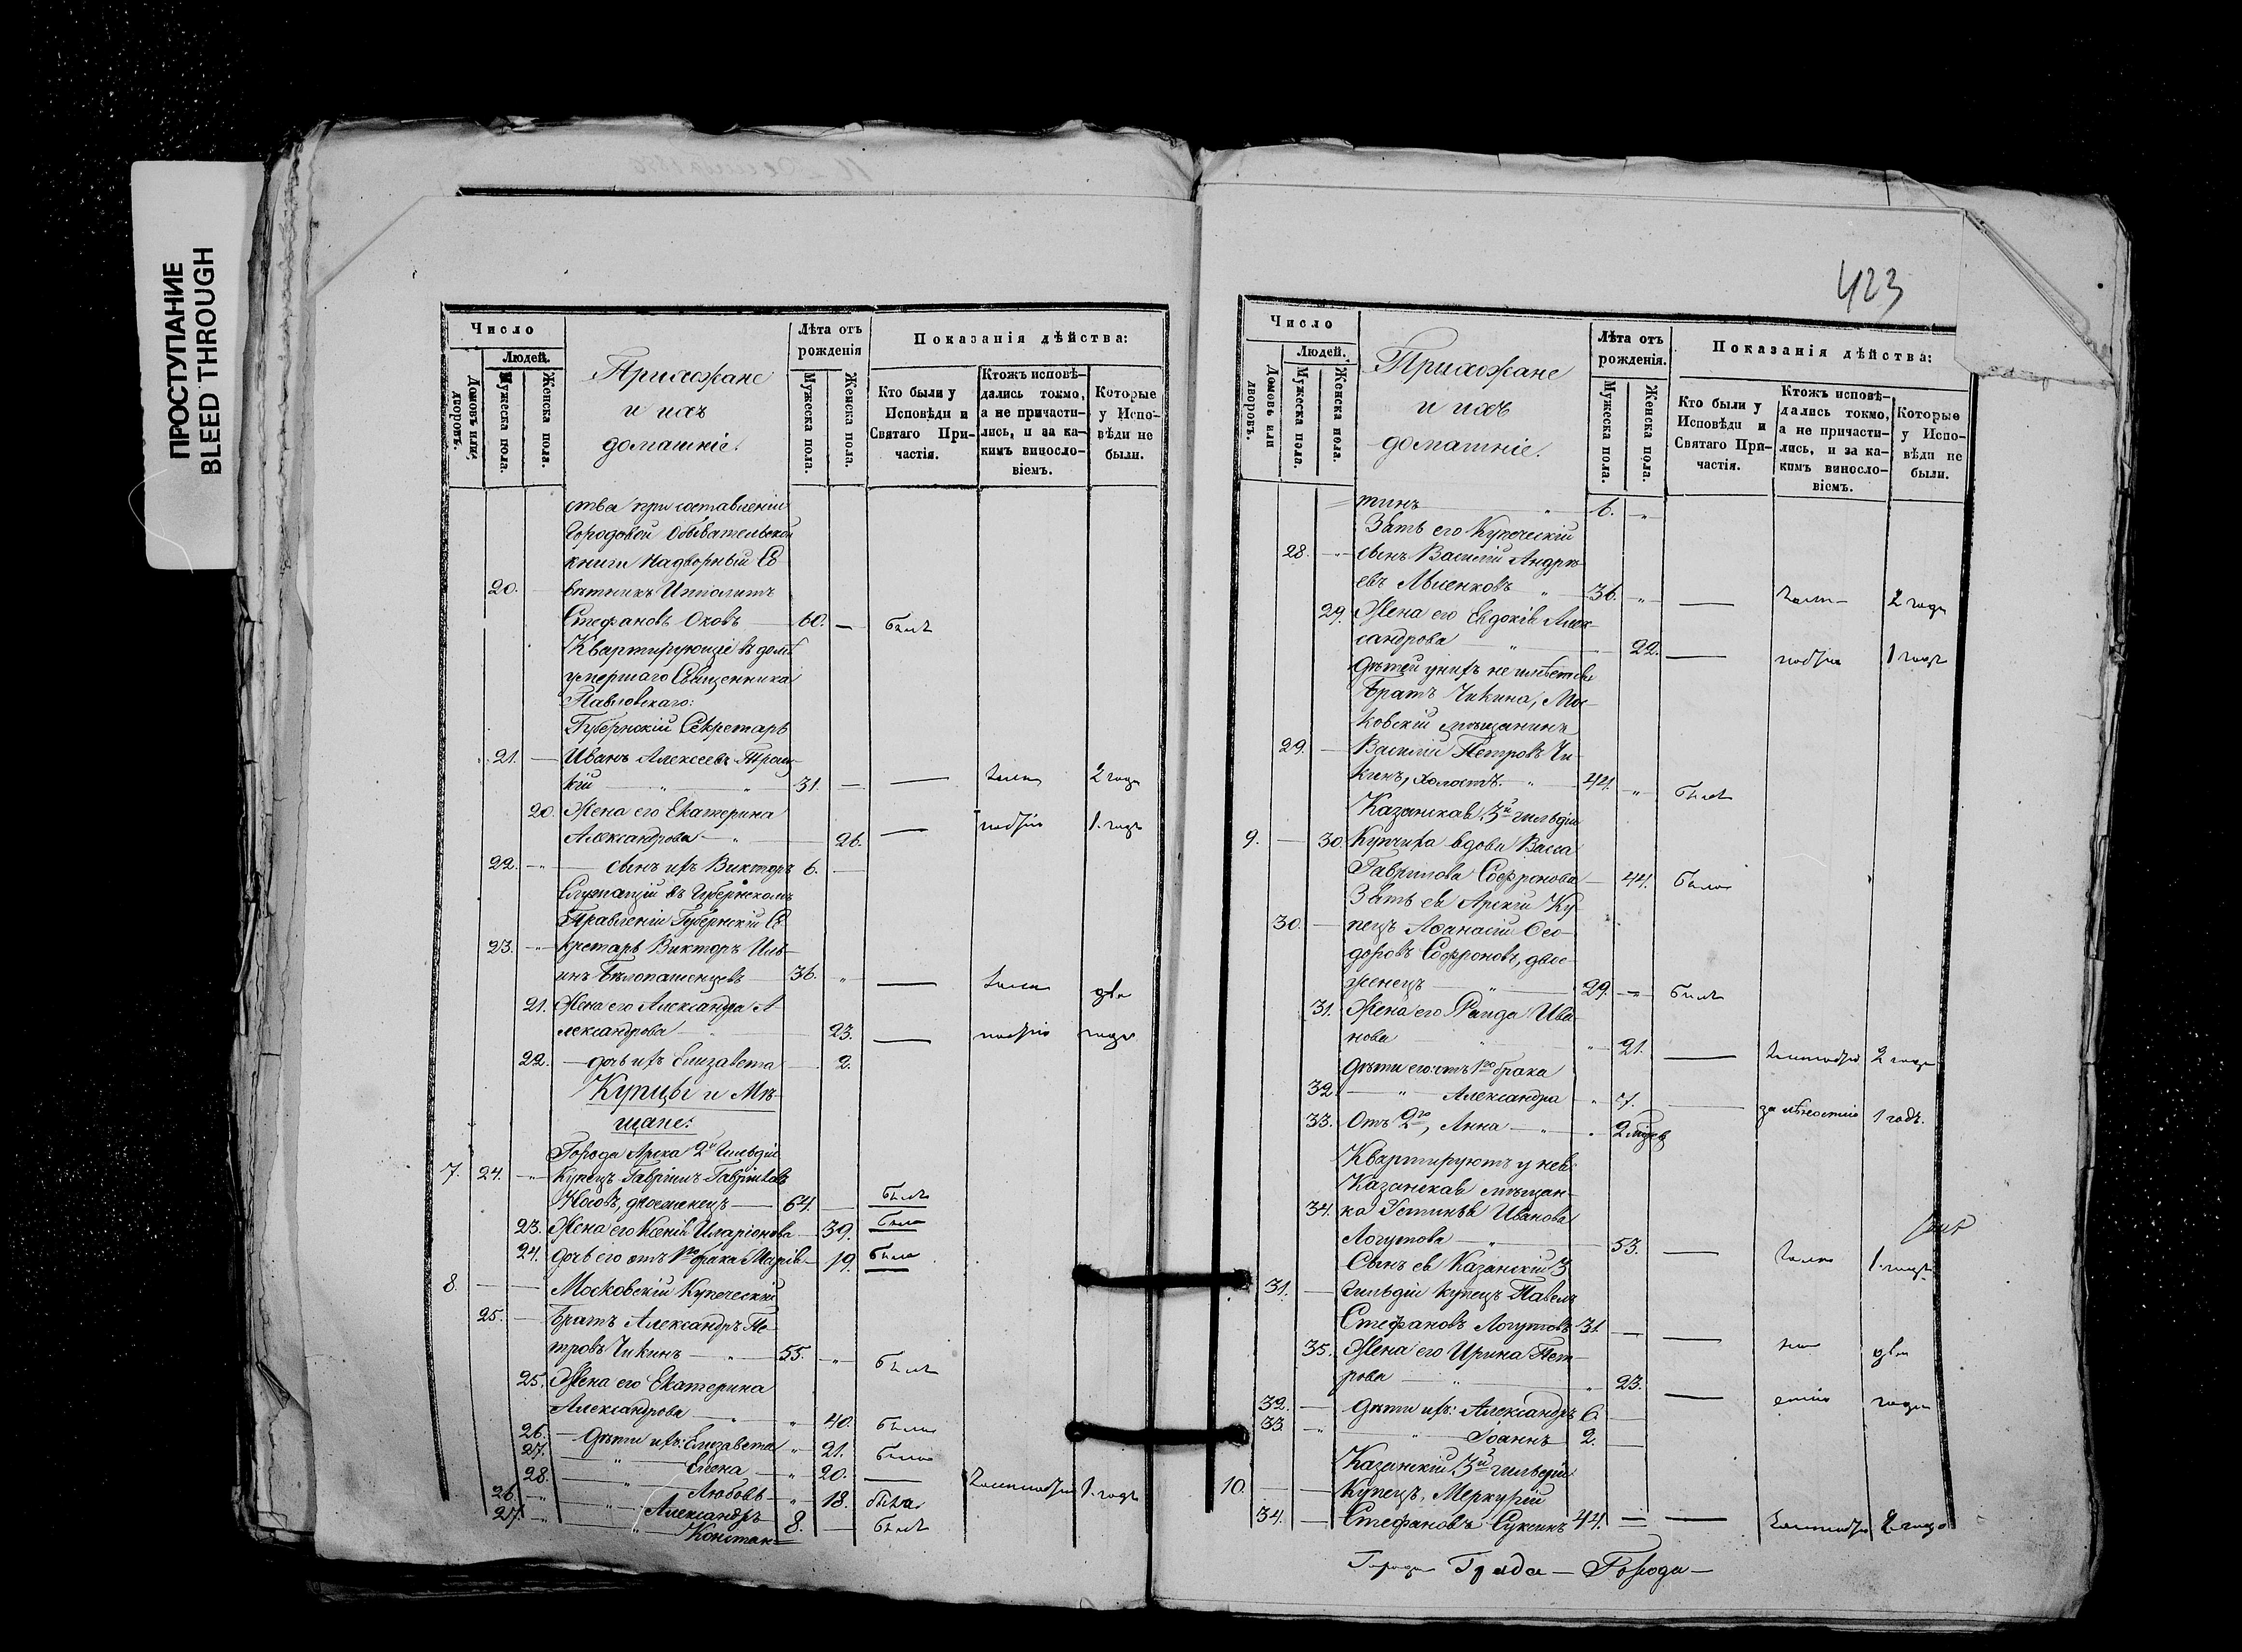 ПРОСТУПАНИЕ
BLEED THROUGH
Число
Лѣта отъ рожденія
Показанія дѣйства:
Людей.
Домовъ или дворовъ.
Мужеска пола.
Женска пола.
Прихожане
и ихъ
домашніе.
Мужеска пола.
Женска пола.
Кто были у Исповѣди и Святаго При-частія.
Ктожъ исповѣ-дались токмо, а не причасти-лись, и за ка-кимъ винослο-віемъ.
Которые у Испо-вѣди не были.
ства при составленіи
Городовой Обывательской
книги Надворный Со
20. вѣтникъ Ипполитъ
Стефановъ Оковъ 60. — былъ
Квартирующіе въ домѣ
умершаго Священника
Павловскаго:
Губернскій Секретарь
21. — Иванъ Алексеевъ
кій " " 31. — — 2 года
20. Жена его Екатерина
Александрова " 26. — 1. годъ
22. " — сынъ ихъ Викторъ 6. —
Служащій въ Губернскомъ
Правленіи Губернскій Се
23. " кретарь Викторъ Иль-
инъ Бѣлопашенцевъ 36. " — два
21. Жена его Александра А-
лександрова 23. — года
22. — дочь ихъ Елизавета 2.
Купцы и Мѣ-
щане:
Города Арска 2й Гильдіи
7. 24. " Купецъ Гавріилъ Гавриловъ
Носовъ, двоеженецъ 64. — былъ
23. Жена его Ксенія Иларіонова 39. была
24. дочь его отъ 1го брака Марія 19. была
8. — — Московскій Купеческій
25. — братъ Александръ Пе-
тровъ Чикинъ " 55. " былъ
25. Жена его Екатерина
Александрова " " 40. была
26. — дѣти ихъ: Елизавета " 21. была
27. " Елена " 20. — 1. годъ
28. " Любовь " 18. была
26. " " Александръ 8. — былъ
27. " " Констан=
423
Число
Лѣта отъ рожденія.
Показанія дѣйства:
Людей.
Домовъ или дворовъ.
Мужеска пола.
Женска пола.
Прихожане
и ихъ
домашніе.
Мужеска пола.
Женска пола.
Кто были у Исповѣди и Святаго При-частія.
Ктожъ исповѣ-дались токмо, а не причасти-лись, и за ка-кимъ винослο-віемъ.
Которые у Испо-вѣди не были.
тинъ " 6. "
Зять его Купеческій
28. " сынъ Василій Андре-
евъ " 36. " — 2 года
29. Жена его Евдокія Алек-
сандрова " 22. — 1 годъ
дѣтей у нихъ не имѣется
Братъ Чикина, Мос-
ковскій мѣщанинъ
29. — Василій Петровъ Чи-
кинъ, холостъ. " 44. " былъ
Казанская 3й гильдіи
9. — 30. Купчиха вдова Васса
Гаврилова Софронова 44. была
Зять ея Арскій Ку-
30. — пецъ Аѳанасій Ѳео-
доровъ Софроновъ, двое-
женецъ " 29. " былъ
31. Жена его Раида Ива-
нова " " 21. — 2 года
дѣти его: отъ 1го брака
32. " Александра " 7. — за лѣностію 1 годъ.
33. Отъ 2го, Анна " " 2 мѣсяц
Квартируютъ у нея:
Казанская мѣщан-
34. ка Устинья Иванова
Логутова " 53. — 1. годъ
Сынъ ея Казанскій 3
31. — гильдіи купецъ Павелъ
Стефановъ Логутовъ 31. — — два
35. Жена его Ирина Пет-
рова " " 23. — года
32. — дѣти ихъ: Александръ 6. —
33. " " Іоаннъ 2. —
Казанскій 3й гильдіи
10. — — Купецъ, Меркурій
34. — Стефановъ Суксинъ 44. — — 2 года
Града —